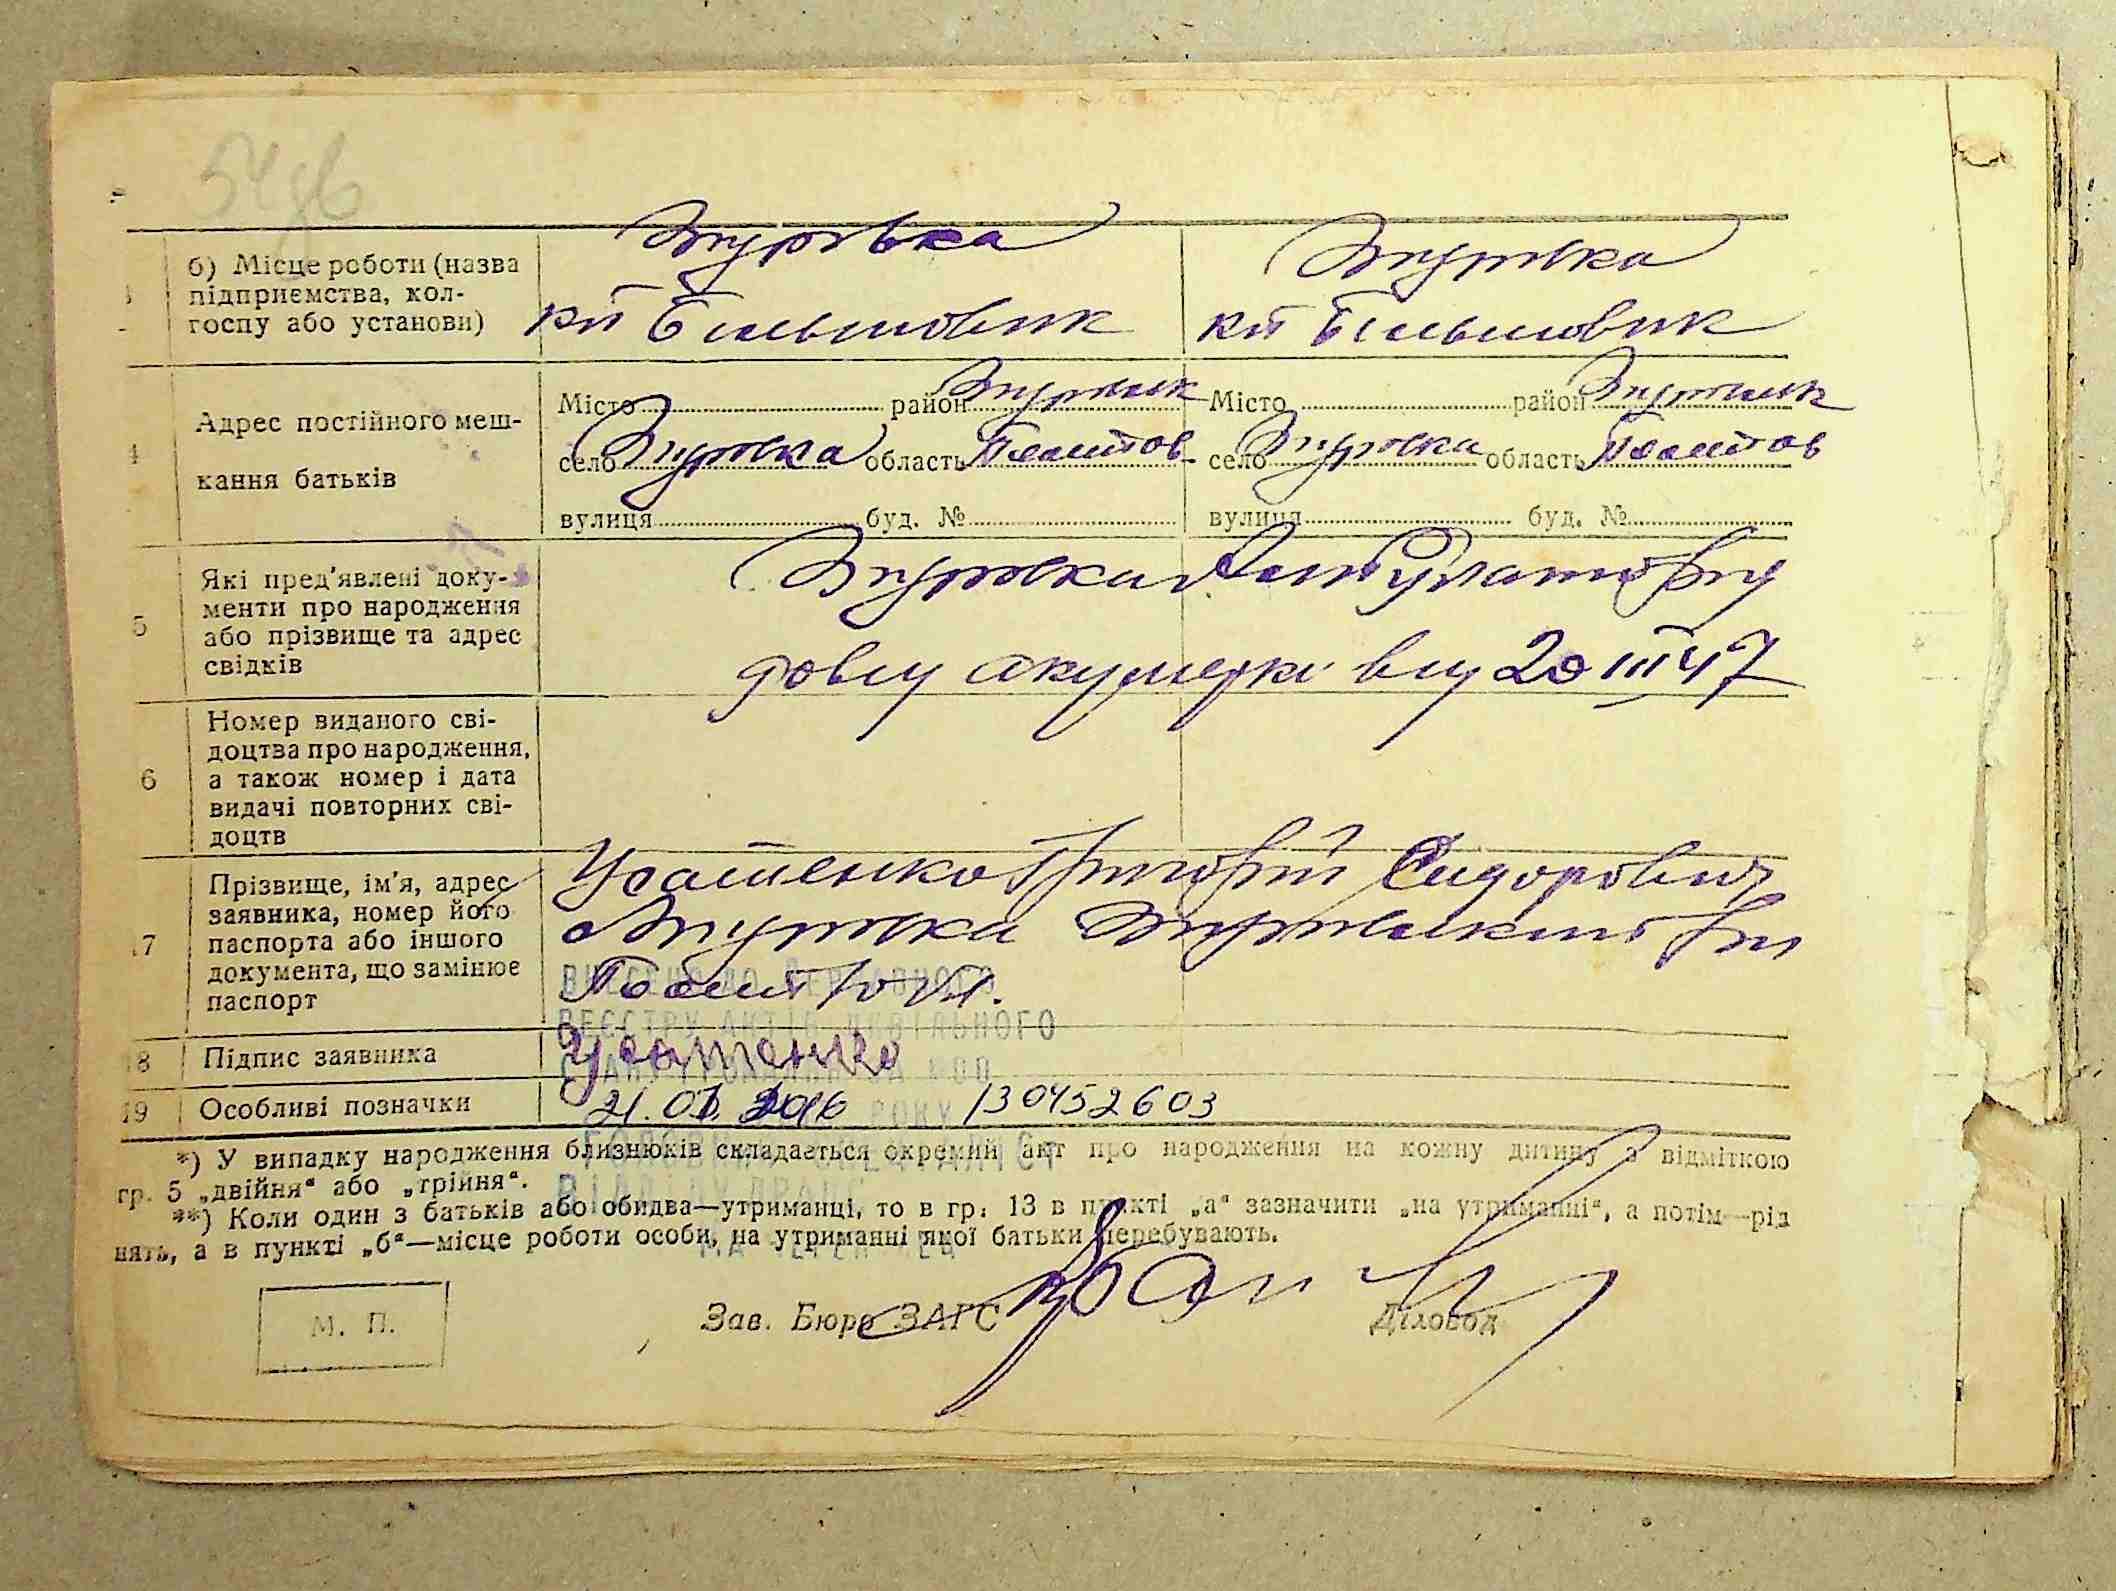 54зв
Згурівка
Згурівка
б) Місце роботи (назва
підприємства, кол-
госпу або установи)
кп Більшовик
кп Більшовик
Місто район Згурівськ
Місто район Згурівськ
Адрес постійного меш-
кання батьків
село Згурівка область Полтов
село Згурівка область Полтов
вулиця буд. №
вулиця буд. №
5
Які пред'явлені доку-
менти про народження
або прізвище та адрес
свідків
Згурівка Амбулаторія
довід акушерки від 20 III 47
6
Номер виданого сві-
доцтва про народження,
а також номер і дата
видачі повторних сві-
доцтв
17
Прізвище, ім'я, адрес
заявника, номер його
паспорта або іншого
документа, що замінює
паспорт
Усатенко Григорій Сидорович
Згурівка Згурівського р-ну
Полт
ВНЕСЕНО ДО ДЕРЖАВНОГО
РЕЄСТРУ АКТІВ ЦИВІЛЬНОГО
18 Підпис заявника
Усатенко
19 Особливі позначки
21.01.2016 РОКУ 130452603
*) У випадку народження близнюків складається окремий акт про народження на кожну дитину з відміткою
гр. 5 „двійня“ або „трійня“.
**) Коли один з батьків або обидва—утриманці, то в гр. 13 в пункті „а“ зазначити „на утриманні“, а потім—рід
нять, а в пункті „б“—місце роботи особи, на утриманні якої батьки перебувають.
М. П.
Зав. Бюро ЗАГС
Діловод